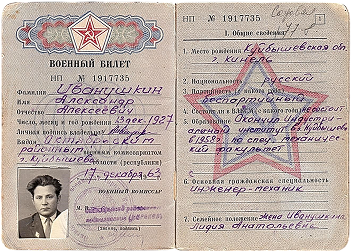 ВОЕННЫЙ БИЛЕТ
НП № 1917735
Фамилия Иванушкин
Имя Александр
Отчество Алексеевич
Число, месяц и год рождения 13 дек. 1927
Личная подпись владельца
Выдан Октябрьским
районным
военным комиссариатом
г. Куйбышева
области (республики)
17 декабря 63
ВОЕННЫЙ КОМИССАР
М. П.
НП № 1917735
1
I. Общие сведения
1. Место рождения Куйбышевская обл
г. Кинель
2. Национальность русский
3. Партийность и с какого года
беспартийный
4. Состоит ли в ВЛКСМ и с какого года не состоит
5. Образование Окончил Индустри
альный институт в г. Куйбышев
в 1959г. по спец. механичес
кий факультет
6. Основная гражданская специальность
инженер-механик
7. Семейное положение жена Иванушкина
Лидия Анатольевна